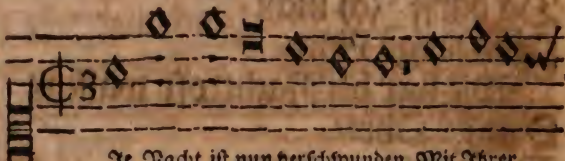 Je Nacht ist nun verschwunden Mit Ihrer